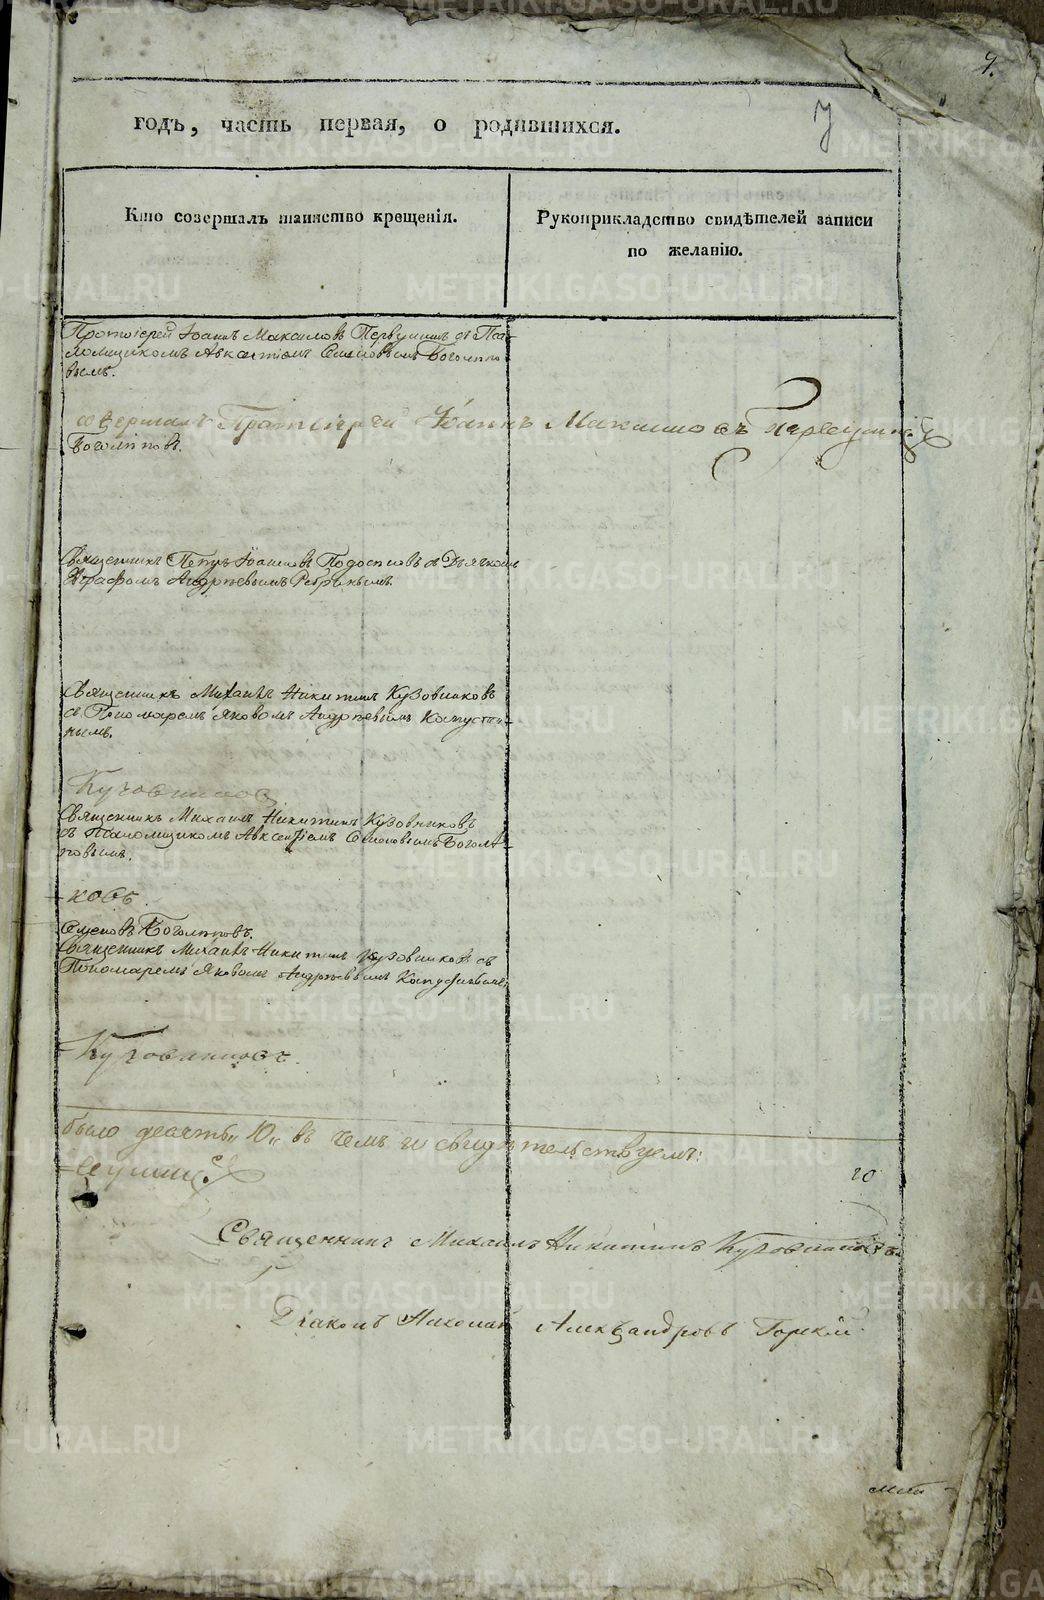 9.
7
годъ, часть первая, о родившихся.
Кто совершалъ таинство крещенія.
Рукоприкладство свидѣтелей записи
по желанію.
Протоіерей Іоаннъ Максимовъ Первушинъ съ Пса-
ломщикомъ Авксентіемъ Семеновымъ Боголѣпо
вымъ.
совершалъ Протоіерей Іоаннъ Максимовъ Первушинъ
Боголѣповъ.
Священникъ Петръ Іоанновъ Подосеновъ съ Дьячкомъ
Андрѣевымъ
Священникъ Михаилъ Никитинъ Кузовниковъ
съ Пономаремъ Яковомъ Андрѣевымъ Капусти-
нымъ.
Кузовниковъ
Священникъ Михаилъ Никитинъ Кузовниковъ
съ Псаломщикомъ Авксентіемъ Семеновымъ Боголѣ-
повымъ.
-ковъ.
Семеновъ Боголѣповъ.
Священникъ Михаилъ Никитинъ Кузовниковъ съ
Пономаремъ Яковомъ Андрѣевымъ Капустинымъ
Кузовниковъ.
было десять „10„ въ чемъ и свидѣтельствуемъ:
10
Священникъ Михаилъ Никитинъ Кузовниковъ
Діаконъ Николай Александровъ Горскій
METRIKI.GASO-URAL.RU